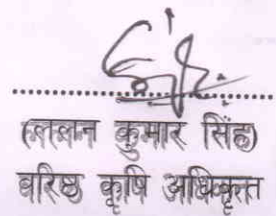 (ललन कुमार सिंह)
वरिष्ठ कृषि अधिकृत